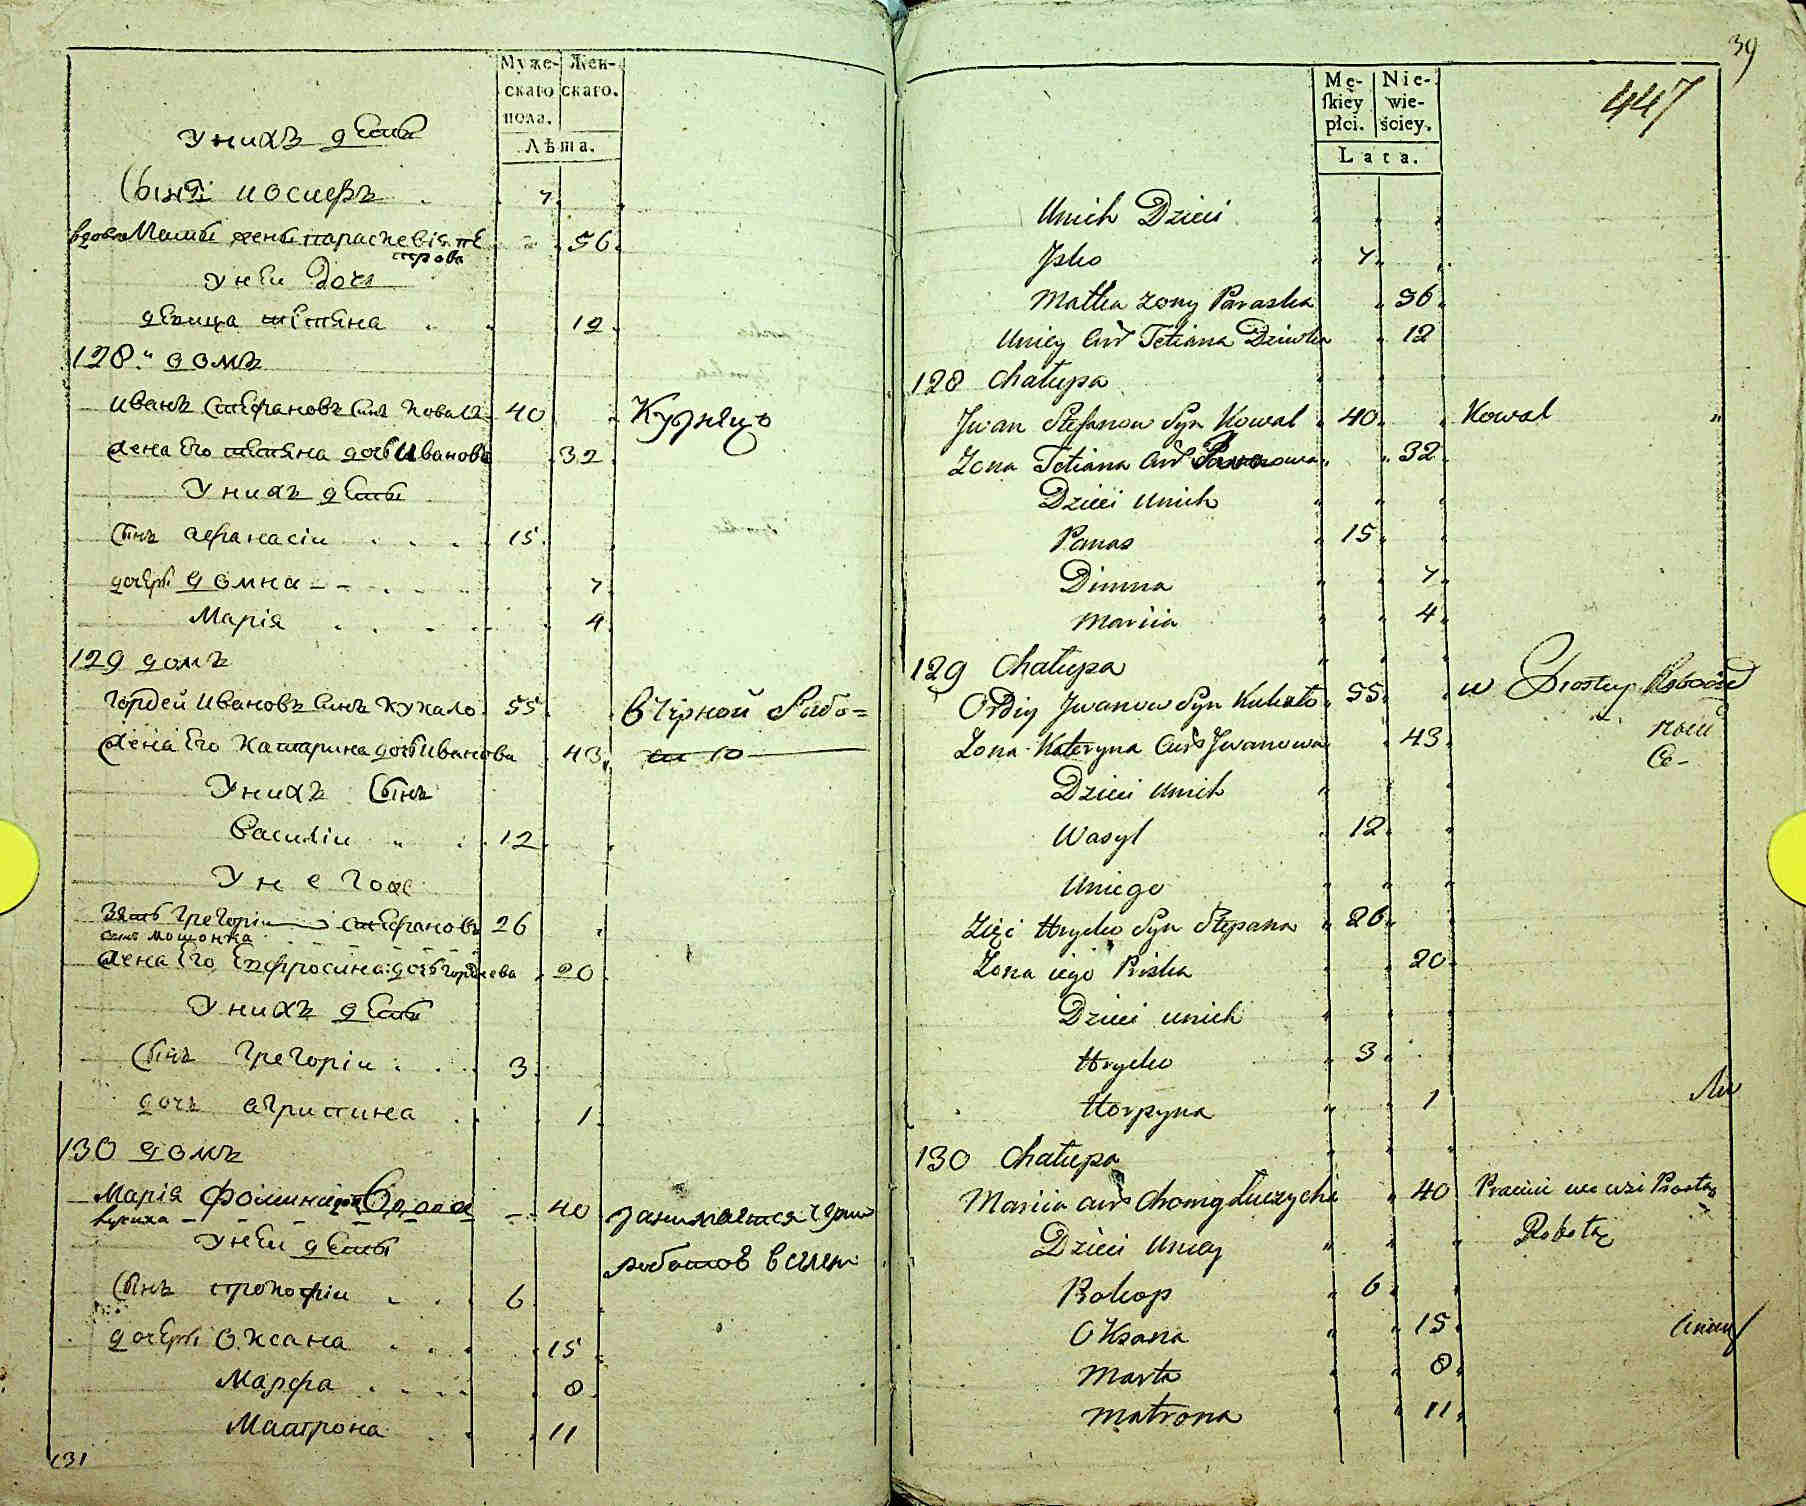 Муже-
скаго
пола.
Жен-
скаго.
Лѣта.
У нихъ дети
Сынъ иосифъ 7
вдова Матъ жены параскевія пе
трова 56
У неи Доч
девица тетяна 12
128. домъ
иванъ Стефановъ Синъ Коваль 40 Кузнецъ
жена Его тетяна дочь Иванова 32
У нихъ дети
Синъ афанасіи 15
дочери домна 7
Марія 4
129 домъ
Гордеи Ивановъ Синъ Кукало 55 в чірной Рабо=
жена Его Катарина дочь Иванова 43 те 10
У нихъ Синъ
Василіи 12
У него же
Зять Грегоріи стефановъ 26
синъ мошонка
жена Его Ефросина дочь Гордеева 20
У нихъ дети
Синъ Грегоріи 3
дочь агрипина 1
130 домъ
Марія Фомина вдова 40 занимается чорн
У неи дети работой в селе
Синъ прокофіи 6
дочери Оксана 15
Марфа 8
Матрона 11
131
39
447
Mę-
skiey
płci.
Nie-
wie-
ściey.
Lata.
Unich Dzieci
Jsko 7
Matka zony Paraska 56
Uniey Cur Tetiana Dziwka 12
128 Chałupa
Jwan Stefanow Syn Kowal 40 Kowal
Zona Tetiana Cur 32
Dzieci Unich
Panas 15
Dimna 7
Mariia 4
129 Chałupa
Ordiy Jwanow Syn Kukało 55 w Prostey Robocie
Zona Kateryna Curs Jwanowa 43
Dzieci Unich
Wasyl 12
Uniego
Zięć Hryćko Syn Stepana 26
Zona iego Priska 20
Dzieci unich
Hryćko 3
Horpyna 1
130 Chałupa
Mariia curs Chomy 40 Pracuie we wsi Prostą
Dzieci Uniey Robotą
Prokop 6
OKsana 15
Marta 8
Matrona 11